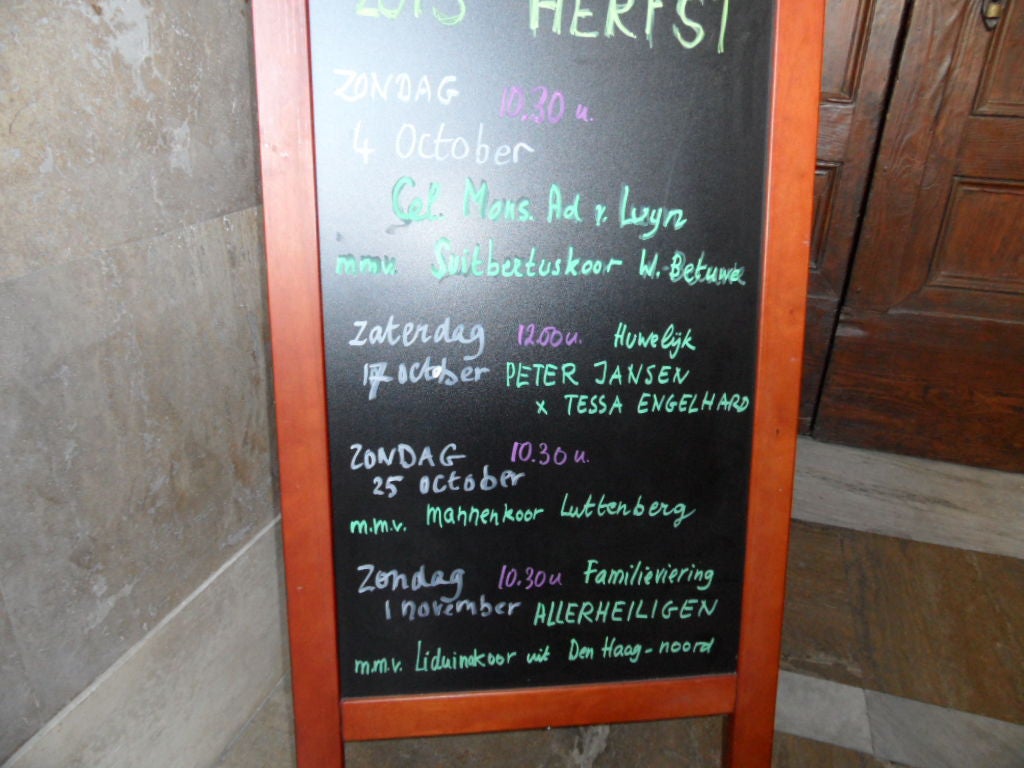 2015 HERFST
ZONDAG 10.30 u.
4 October
Cel. Mons. Ad v. Luyn
m.m.v. Suitbertuskoor W. Betuwe
Zaterdag 12.00u. Huwelijk
17 october PETER JANSEN
x TESSA ENGELHARD
ZONDAG 10.30 u.
25 october
m.m.v. Mannenkoor Luttenberg
Zondag 10.30u Familieviering
1 november ALLERHEILIGEN
m.m.v. Liduinakoor uit Den Haag-noord